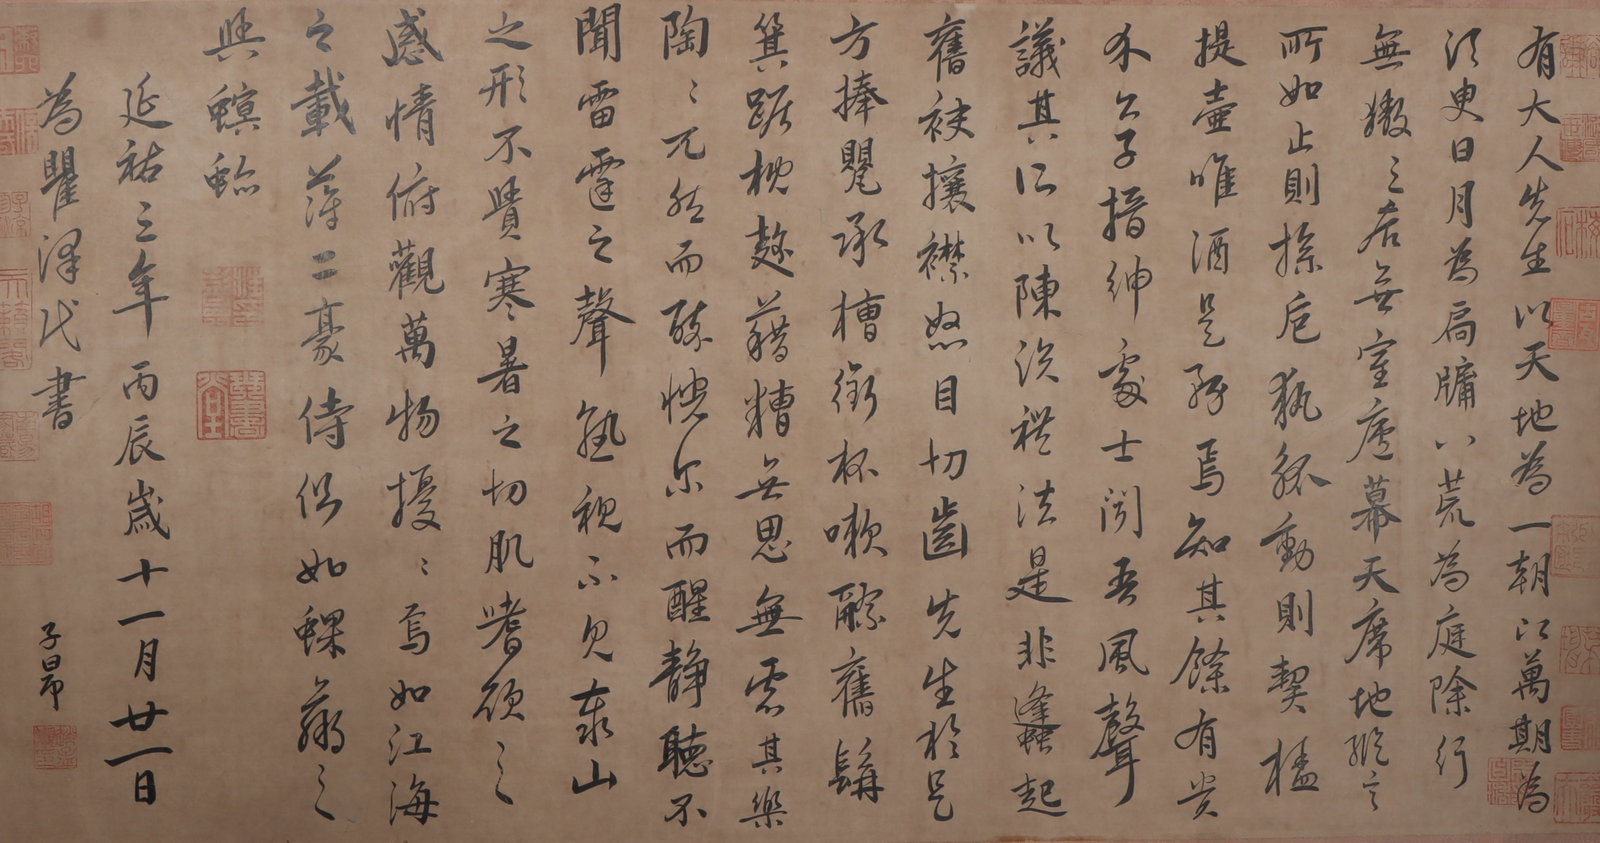 有大人先生以天地為一朝以萬期為
須臾日月為扃牖八荒為庭除行
無轍之居無室廬幕天席地縱意
所如止則操卮執觚動則契榼
提壺唯酒是務焉知其餘有貴
介公子搢紳處士聞吾風聲
議其所以陳說禮法是非鋒起
舊袂攘襟怒目切齒先生於是
方捧甖承槽銜杯嗽醪舊髯
箕踞枕麴藉糟無思無慮其樂
陶〻兀然而醉怳尔而醒靜聽不
聞雷霆之聲孰視不見泰山
之形不覺寒暑之切肌嗜欲之
感情俯觀萬物擾〻焉如江海
之載萍二豪侍側如蜾蠃之
與螟蛉
延祐三年丙辰歲十一月廿一日
為瞿澤民書
子昂